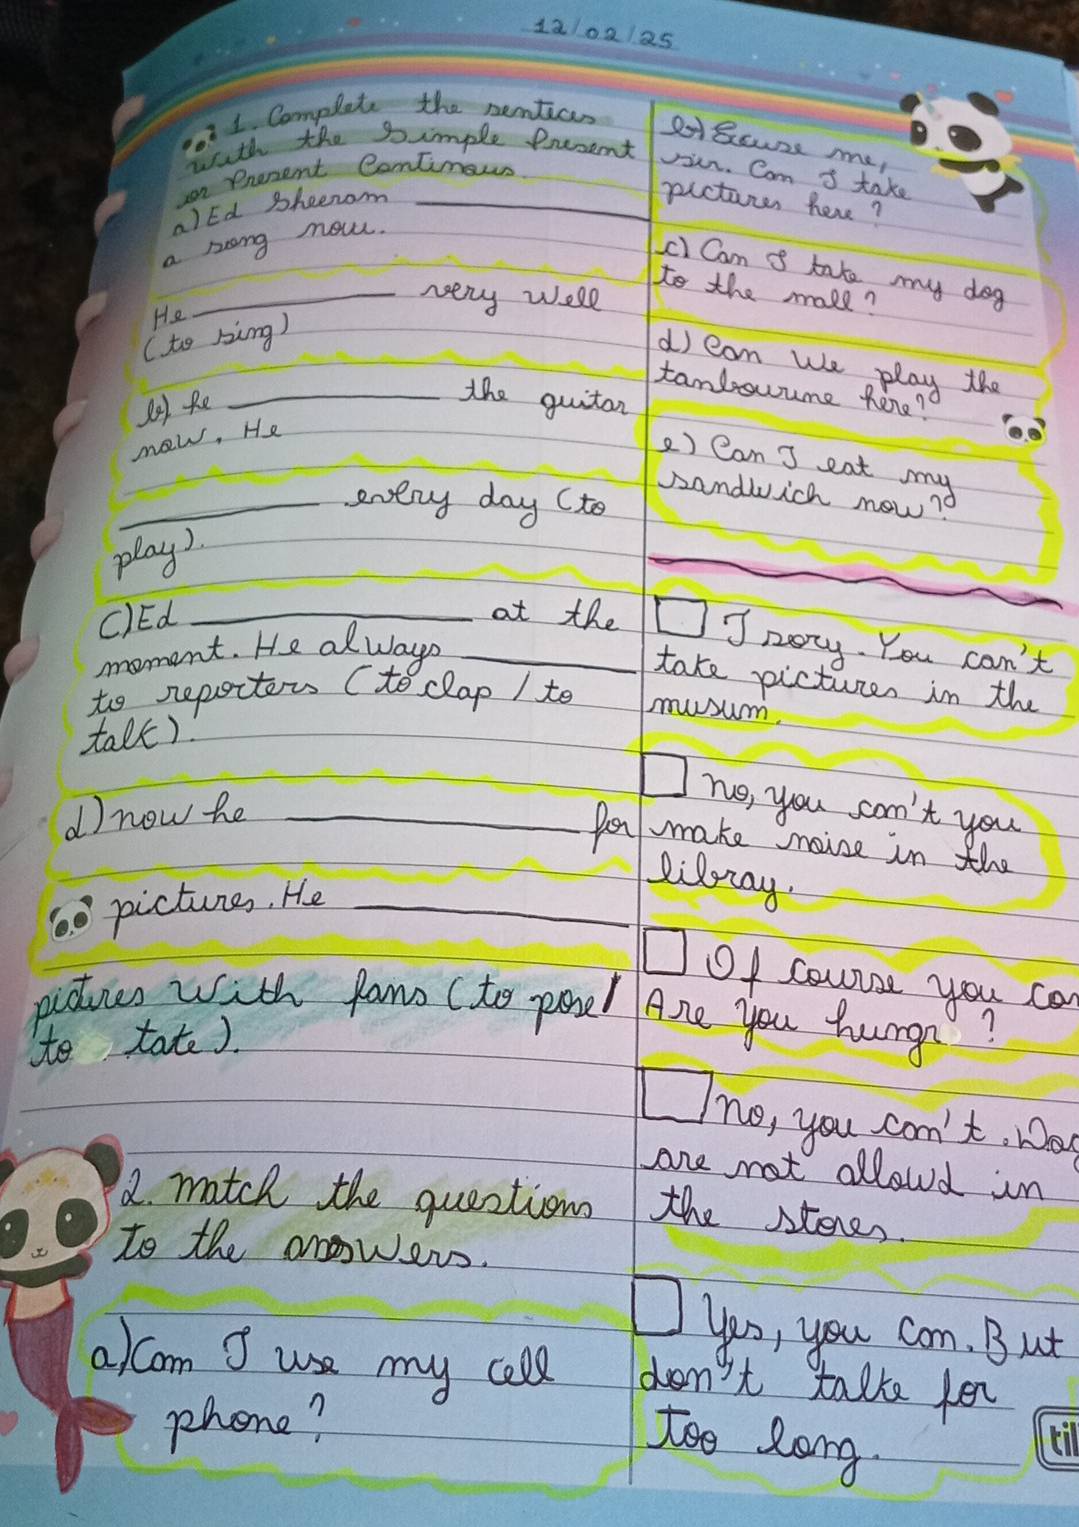 12/02/25
1. Complete the sentices
with the Simple Present
or Present Continous.
a) Ed Sheeram ____________
a song now.
He ____________ very well
(to sing)
b) he ____________ the guitar
now. He
____________ every day (to
play).
C) Ed ____________ at the
moment. He always ____________
to reporters (to clap / to
talk).
d) now he ____________ for
pictures. He ____________
pictures with fans (to pose/
to tate).
2. match the questions
to the answers.
a) Can I use my cell
phone?
b) Excuse me,
sir. Can I take
pictures here?
c) Can I take my dog
to the mall?
d) Can We play the
tambourine here?
e) Can I eat my
sandwich now?
☐ I sory. You can't
take pictures in the
musum.
☐ no, you can't you
make noise in the
libray.
☐ Of course you can
Are you hungr ?
☐ no, you can't. Dog
are not allowd in
the stores.
☐ Yes, you can. But
don't talke for
too long.
til